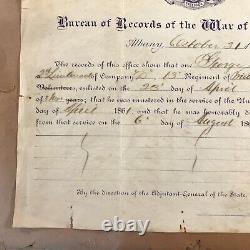 Bureau of Records of the War of
Albany, October 31
The records of this office show that one George
2d Lieutenant of Company 13 Regiment of
Volunteers, enlisted on the 22d day of April
years; that he was mustered in the service of the Un
day of April 1861,
from that service on the 6 day of August 186
By the direction of the Adjutant-General of the State.